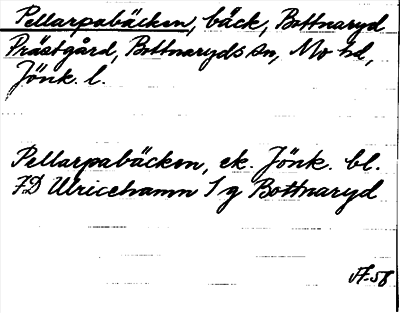 Pellarpabäcken, bäck, Bottnaryd
Prästgård, Bottnaryds sn, Mo hd,
Jönk. l.
Pellarpabäcken, ek. Jönk. bl.
7D Ulricehamn S g Bottnaryd
JF-58